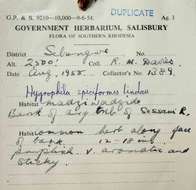 G. P. & S. 9210—10,000—9-6-54. Ag. 1
DUPLICATE
GOVERNMENT HERBARIUM, SALISBURY
FLORA OF SOUTHERN RHODESIA
District Sebungwe
Alt. 2,500' Col. R. M. Davies
Date Aug. 1955. Collector's No. 1389
Hygrophila spiciformis Lindau
Habitat
Bank of trib of Sessami R.
Habit Common herb along face
of bank 12–18 ins.
Purplish v. aromatic and
sticky.